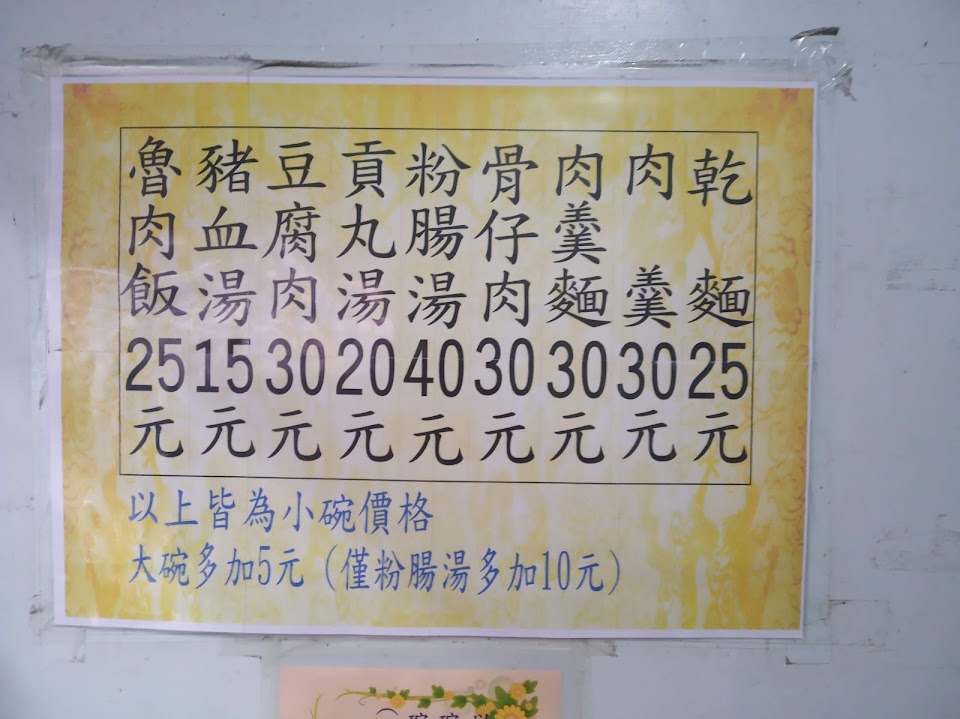 乾麵25元
肉羹30元
肉羹麵30元
骨仔肉30元
粉腸湯40元
貢丸湯20元
豆腐肉30元
豬血湯15元
魯肉飯25元
以上皆為小碗價格
大碗多加5元(僅粉腸湯多加10元)